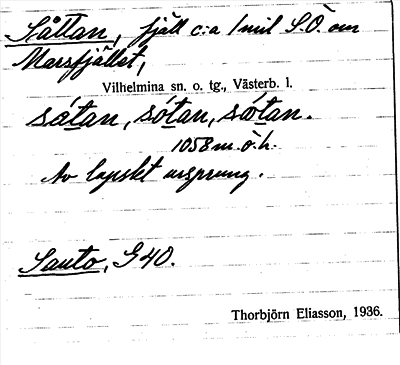 Såttan, fjäll c:a 1 mil S.Ö. om
Marsfjället,
Vilhelmina sn. o. tg., Västerb. l.
sátan, sótan, sǿtan.
1058 m. ö. h.
Av lapskt ursprung.
Sauto, G 40.
Thorbjörn Eliasson, 1936.